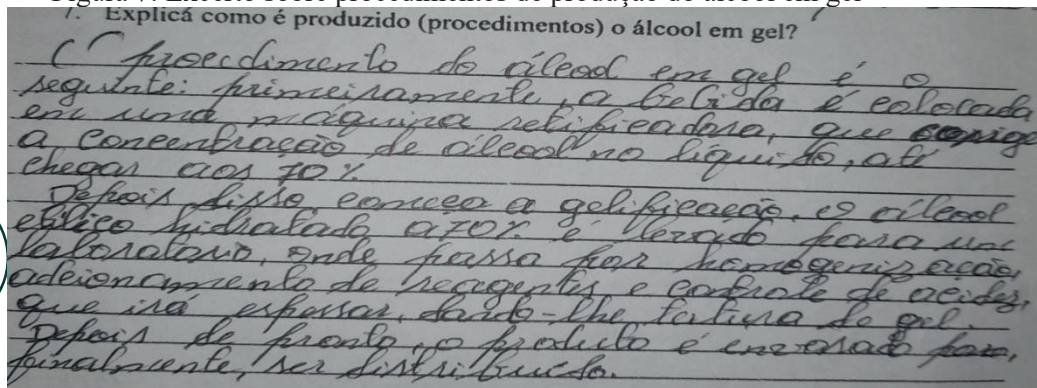 7. Explica como é produzido (procedimentos) o álcool em gel?
O procedimento do álcool em gel é o
seguinte: primeiramente, a bebida é colocada
em uma máquina retificadora, que corrige
a concentração de álcool no líquido, até
chegar aos 70%
Depois disso, começa a gelificação. O álcool
etílico hidratado a 70% é levado para um
laboratório, onde passa por homogenização,
adicionamento de reagentes e controle de acidez,
que irá espessar, dando-lhe textura do gel.
Depois de pronto, o producto é envasado para,
finalmente, ser distribuido.